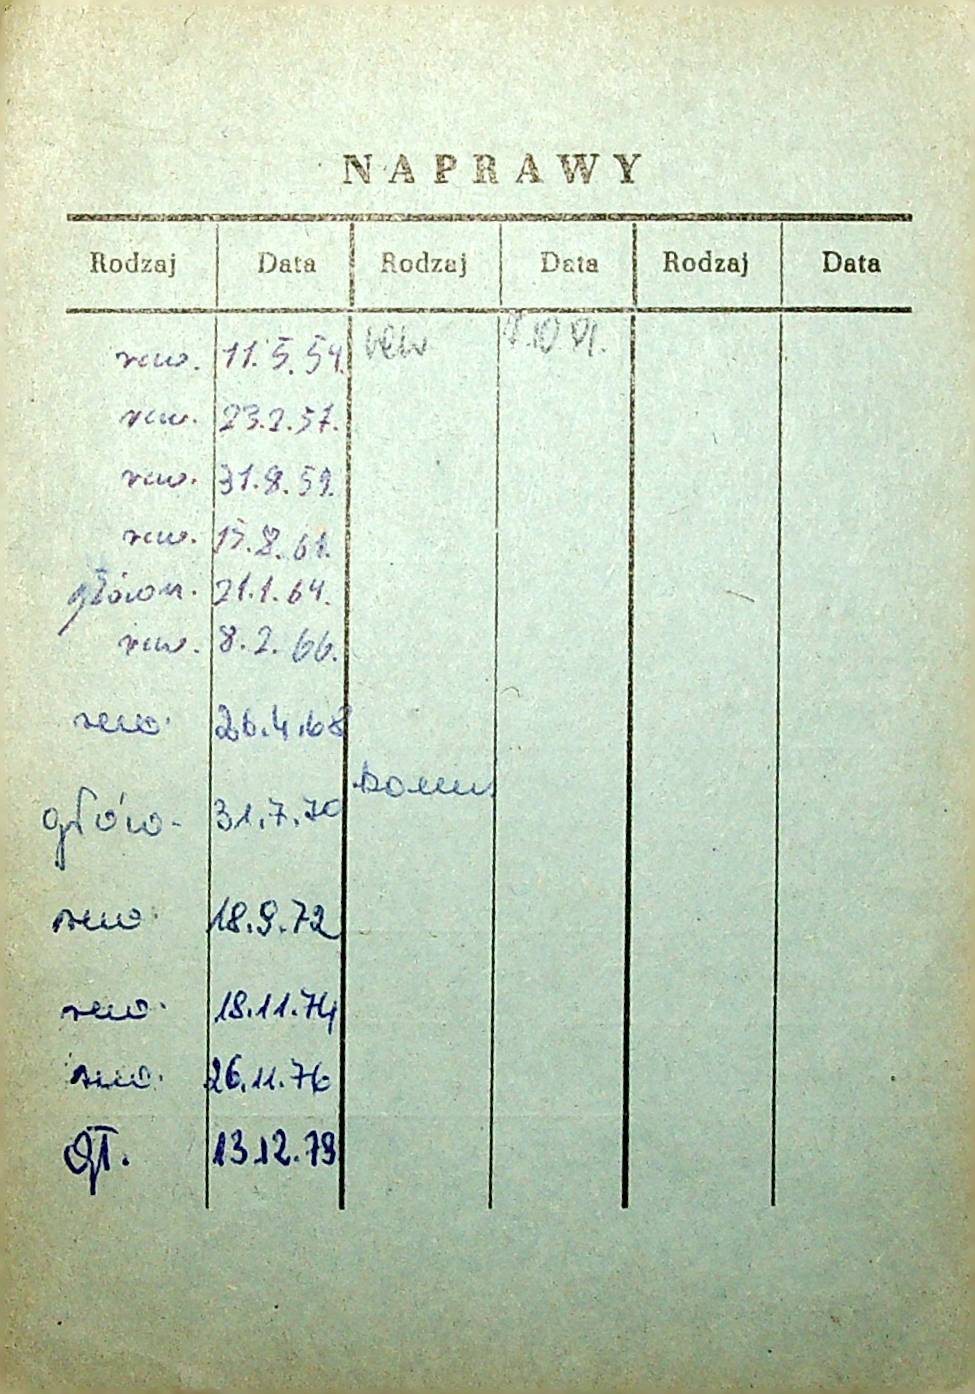 NAPRAWY
Rodzaj Data Rodzaj Data Rodzaj Data
rew. 11.5.54. rew
rew. 23.2.57.
rew. 31.8.59.
rew. 15.8.61.
główn. 21.1.64.
rew. 8.2.66.
rew. 26.4.68
główn. 31.7.70
rew. 18.9.72
rew. 18.11.74
rew. 26.11.76
Gł. 13.12.79